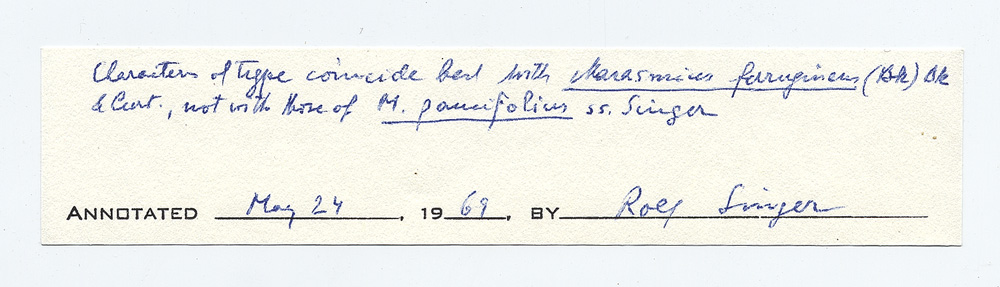 Characters of type coincide best with Marasmius ferrugineus (Bk) Bk
& Curt., not with those of M. paucifolius ss. Singer
ANNOTATED May 24, 1969, BY Rolf Singer